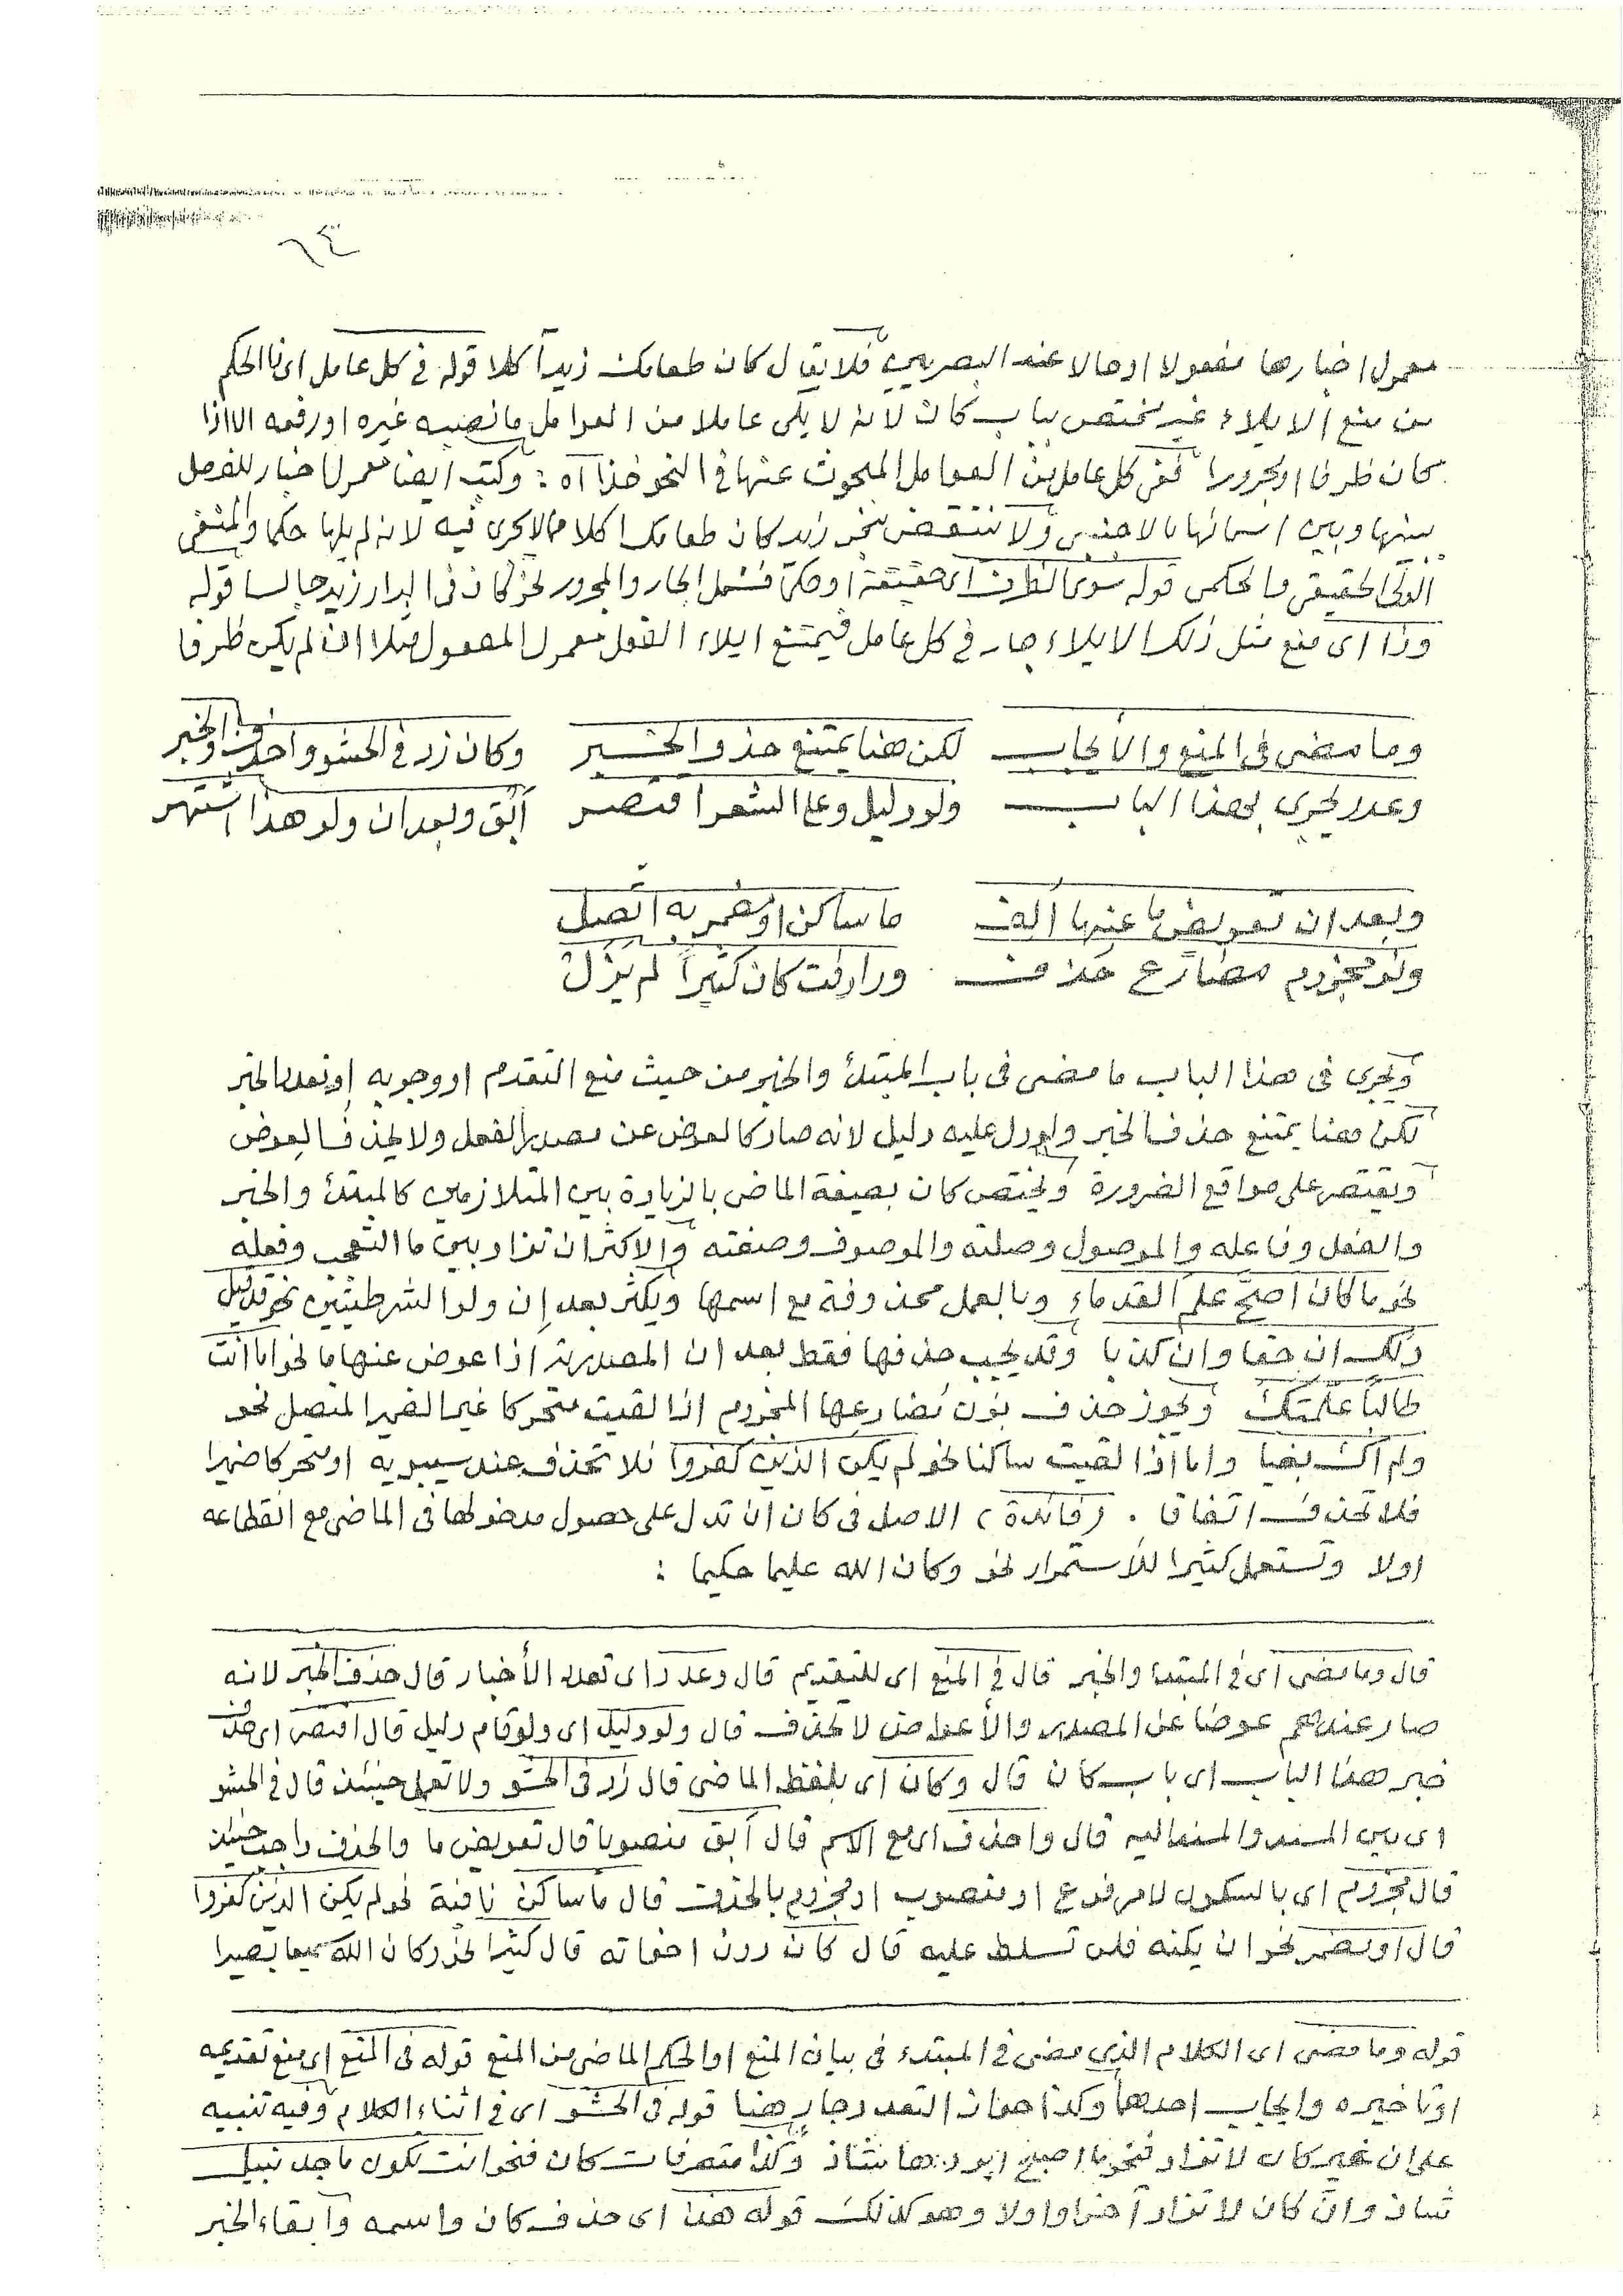 ٦٤
معمول اخبارها مفعولا او حالا عند البصريين فلا يقال كان طعامك زيدا آكلا قوله في كل عامل اى ذا الحكم
من منع الايلاء غير مختص بباب كان لانه لا يلى عاملا من العوامل ما نصبه غيره او رفعه الا اذا
كان ظرفا او مجرورا ففى كل عامل من العوامل المبحوث عنها في النحو خذا آه : وكتب ايضا معمول اخبار للفصل
بينها وبين اسمائها بالاجنبى ولا تنتقض بنحو زيد كان طعامك آكلا مما لا يجرى فيه لانه لم يلها حكما والمنفى
الولى الحقيقى والحكمى قوله سوى الظرف اى حقيقة او حكما فشمل الجار والمجرور نحو كان فى الدار زيد جالسا قوله
وذا اى منع مثل ذلك الايلاء جار في كل عامل فيمتنع ايلاء الفعل معمول المفعول مثلا ان لم يكن ظرفا
وما مضى فى المنع والأيجاب لكن هنا يمتنع حذو الخبر وكان زد فى الحشو واحذف والخبر
وعدد يجرى بهذا الباب ولو دليل وعلى الشعر اقتصر أبق وبعد ان ولو هذا اشتهر
وبعد ان تعويض ما عنها ألف ما ساكن او مضمر به اتصل
ونون مجزوم مضارع حذف ورادفت كان كثيراً لم يزل
ويجرى فى هذا الباب ما مضى فى باب المبتدأ والخبر من حيث منع التقدم او وجوبه او تعدد الخبر
لكن هنا يمتنع حذف الخبر ولو دل عليه دليل لانه صار كالعوض عن مصدر الفعل ولا يحذف العوض
ويقتصر على مواقع الضرورة ويختص كان بصيغة الماضى بالزيادة بين المتلازمين كالمبتدأ والخبر
والفعل وفاعله والموصول وصلته والموصوف وصفته والاكثر ان تزاد بين ما التعجب وفعله
نحو ما كان اصح علم القدماء وبالعمل محذوفة مع اسمها ويكثر بعد إن ولو الشرطيتين نحو قد قيل
ذلك ان حقا وان كذبا وقد يجب حذفها فقط بعد ان المصدرية اذا عوض عنها ما نحو اما انت
طالباً علمتك ويجوز حذف نون مضارعها المجزوم اذا لقيت متحركا غير الضمير المتصل نحو
ولم اك بغيا واما اذا لقيت ساكنا نحو لم يكن الذين كفروا فلا تحذف عند سيبويه او متحركا ضميرا
فلا تحذف اتفاقا . (فائدة) الاصل فى كان ان تدل على حصول مدخولها فى الماضى مع انقطاعه
اولا وتستعمل كثيرا للأستمرار نحو وكان الله عليما حكيما :
قال وما مضى اى في المبتدا والخبر قال في المنع اى للتقديم قال وعدد اى تعدد الأخبار قال حذف الخبر لانه
صار عندهم عوضا عن المصدر والأعواض لا تحذف قال ولو دليل اى ولو قام دليل قال اقتصر اى حذف
خبر هذا الباب اى باب كان قال وكان اى بلفظ الماضى قال زد فى الحشو ولا تعمل حينئذ قال في الحشو
اى بين المسند والمسند اليه قال واحذف اى مع الاسم قال أبق منصوبا قال تعويض ما والحذف واجب حينئذ
قال مجزوم اى بالسكون لا مرفوع او منصوب او مجزوم بالحذف قال ما ساكن نافية نحو لم يكن الذين كفروا
قال او مضمر نحو ان يكنه فلن تسلط عليه قال كان دون اخواته قال كثيرا نحو وكان الله سميعا بصيرا
قوله وما مضى اى الكلام الذي مضى في المبتدء فى بيان المنع او الحكم الماضى من المنع قوله فى المنع اى منع تقديمه
او تاخيره وايجاب احدهما وكذا جواز التعدد جار هنا قوله فى الحشو اى فى اثناء الكلام وفيه تنبيه
على ان غير كان لا تزاد فنحو ما اصبح ابردها شاذ وكذا متصرفات كان فنحو انت تكون ماجد نبيل
شاذ وان كان لا تزاد آخرا واولا وهو كذلك قوله هذا اى حذف كان واسمه وابقاء الخبر